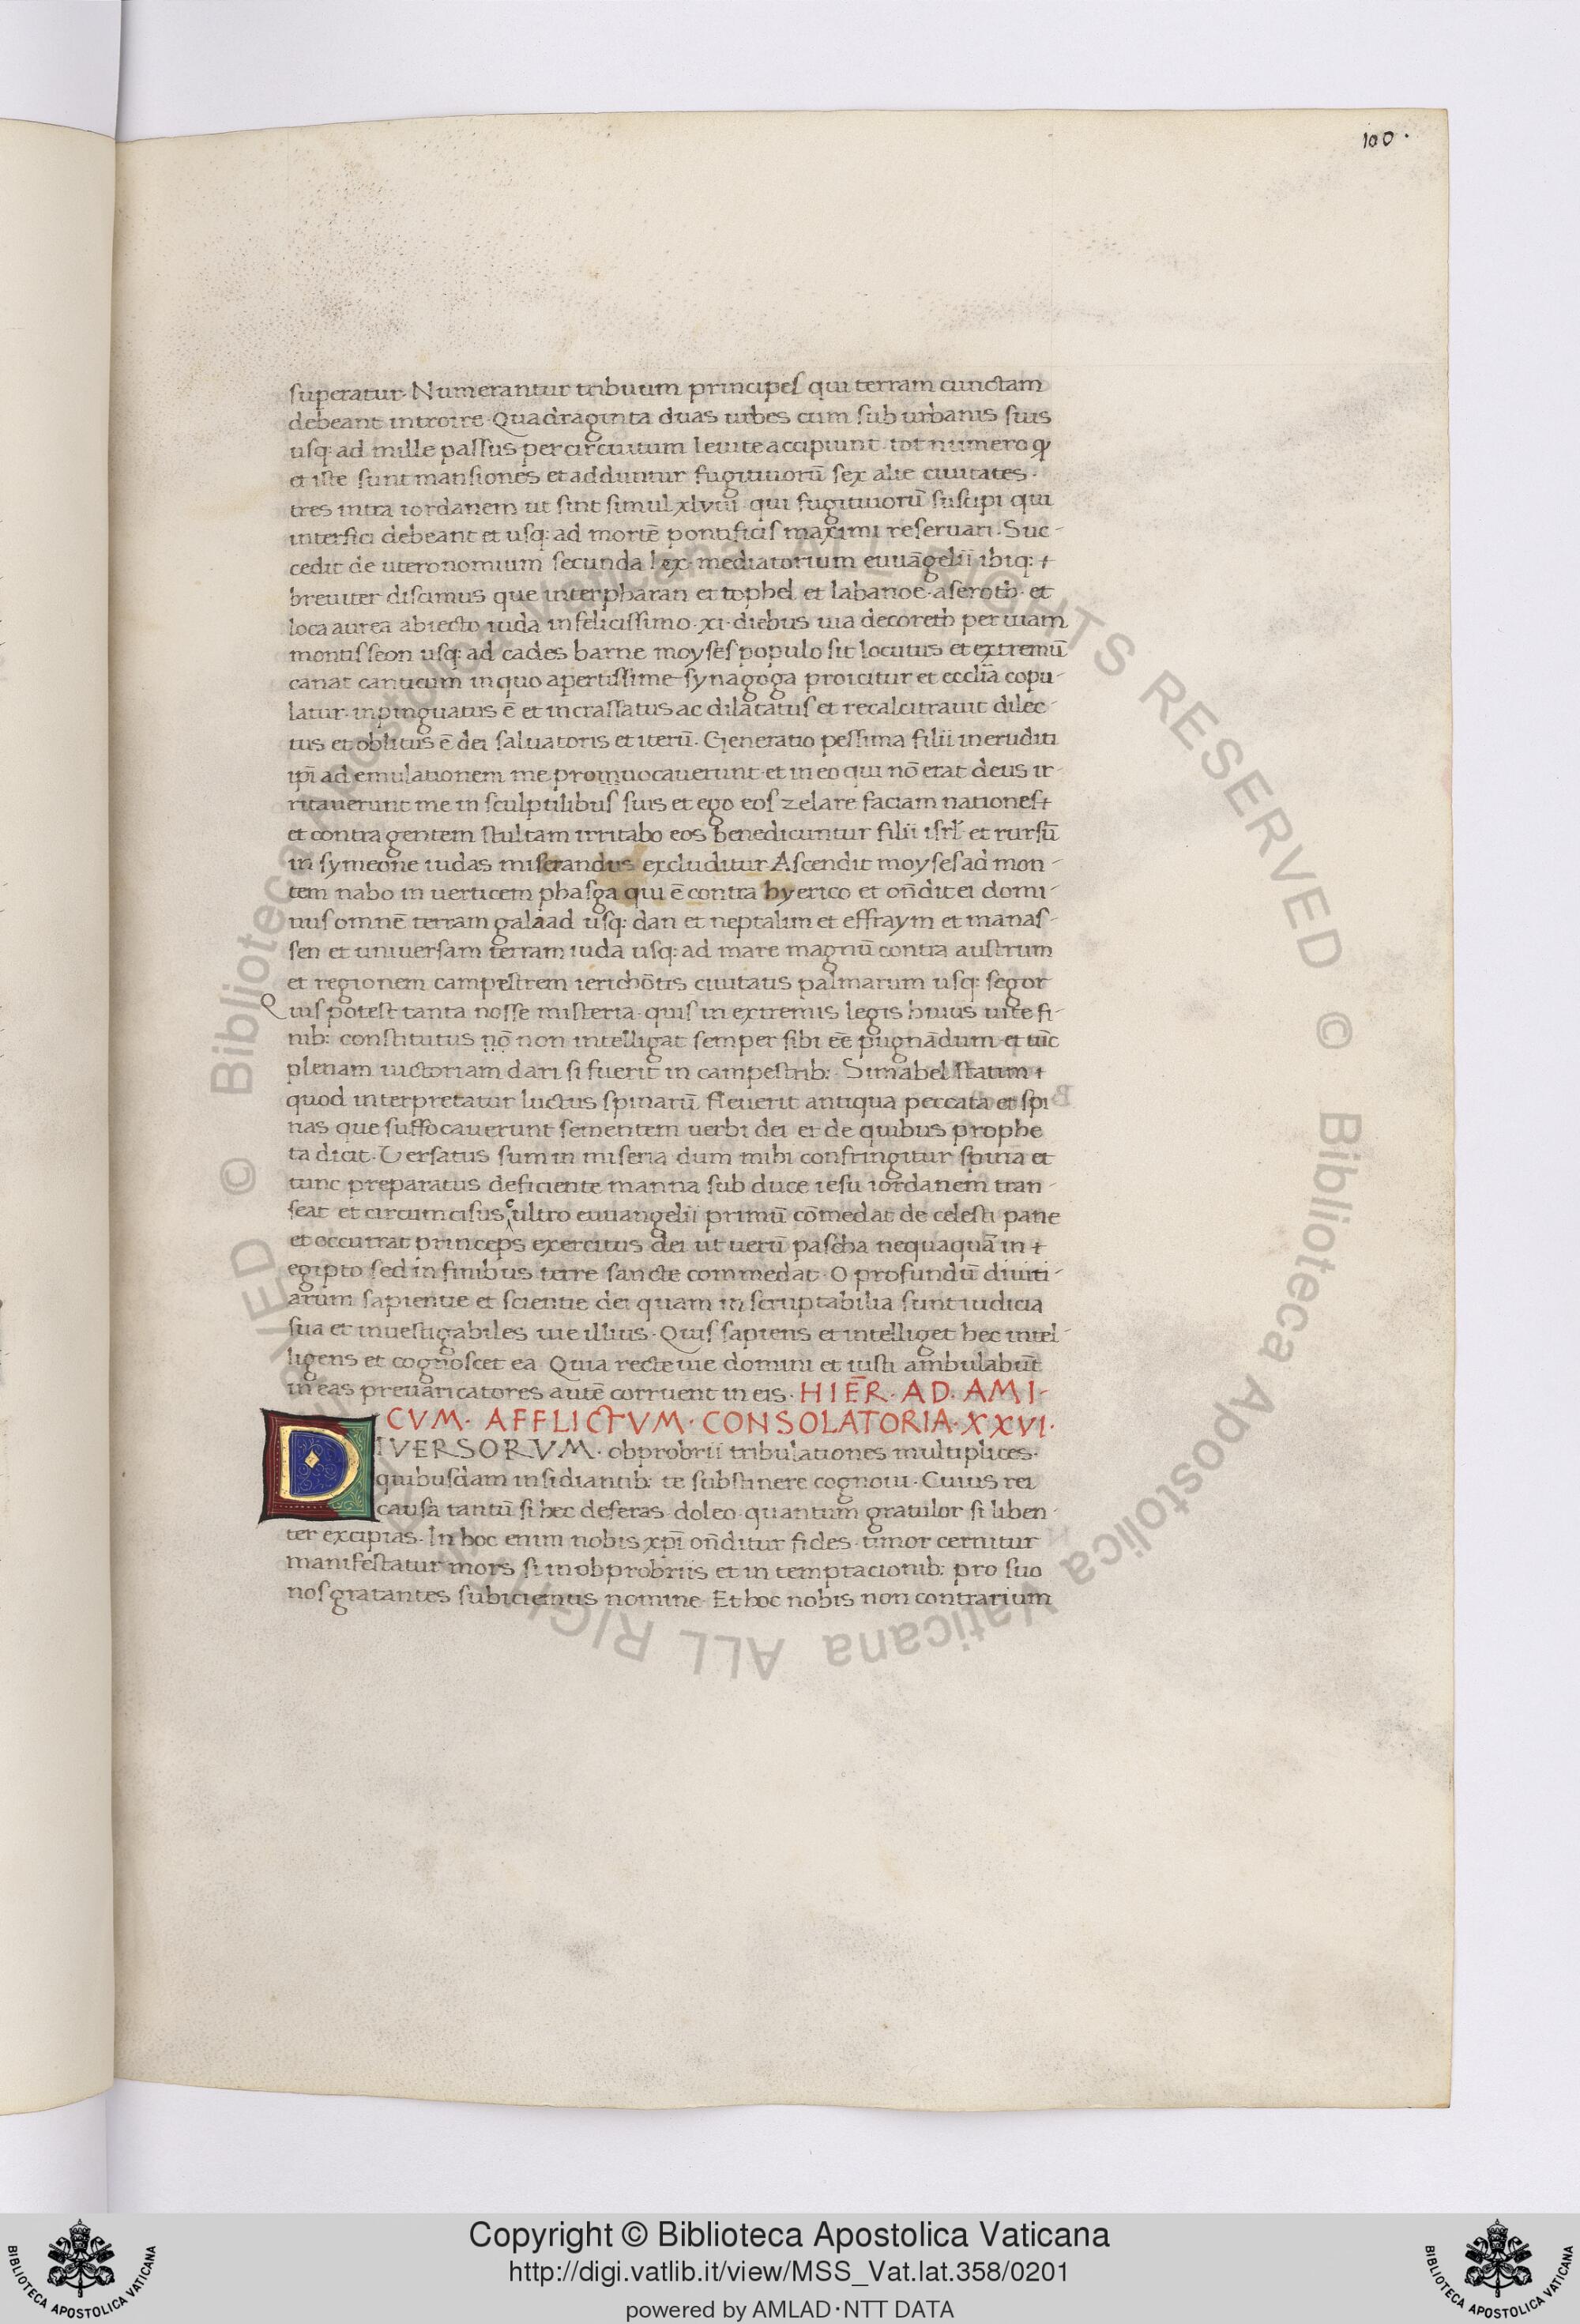 100.
superatur. Numerantur tribuum principes qui terram cunctam
debeant introire. Quadraginta duas urbes cum sub urbanis suis
usq: ad mille passus per circuitum leuite accipiunt. tot numero qͥ
et iste sunt mansiones et adduntur fugitiuorū sex alie ciuitates.
tres intra iordanem ut sint simul xlviii. qui fugitiuorū suscipi qui
interfici debeant et usq: ad mortē pontificis maximi reseruari. Suc-
cedit de uteronomium secunda lex. mediatorium euuāgelii ibiq:
breuiter discimus que inter pharan et tophel et labanoe. aseroth. et
loca aurea abiecto iuda infelicissimo. xi. diebus uia decoreth per uiam
montis seon usq: ad cades barne moyses populo sit locutus et extremū
canat canticum in quo apertissime synagoga proicitur et ecclīa copu-
latur. inpinguatus ē et incrassatus ac dilatatus et recalcitrauit dilec-
tus et oblitus ē dei saluatoris et iterū. Generatio pessima filii ineruditi
ipī ad emulationem me promuocauerunt et in eo qui nō erat deus ir-
ritauerunt me in sculptilibus suis et ego eos zelare faciam nationes
et contra gentem stultam irritabo eos benedicuntur filii isrl̄ et rursū
in symeone iudas miserandus excluditur Ascendit moyses ad mon-
tem nabo in uerticem phasga qui ē contra hyerico et on̄dit ei domi-
nus omnē terram galaad usq: dan et neptalim et effraym et manas-
sen et uniuersam terram iuda usq: ad mare magnū contra austrum
et regionem campestrem ierichōtis ciuitatis palmarum usq: segor
Quis potest tanta nosse misteria. quis in extremis legis huius uite fi-
nib: constitutus nō non intelligat semper sibi eē pugnādum et tūc
plenam uictoriam dari si fuerit in campestrib: Simabel statum
quod interpretatur luctus spinarū fleuerit antiqua peccata et spi
nas que suffocauerunt sementem uerbi dei et de quibus prophe
ta dicit. Versatus sum in miseria dum mihi confringitur spina et
tunc preparatus deficiente manna sub duce iesu iordanem tran-
seat et circumcisus cultro euuangelii primū cōmedat de celesti pane
et occurrat princeps exercitus dei ut uerū pascha nequaquā in
egipto sed in finibus terre sancte commedat. O profundū diuiti-
arum sapientie et scientie dei quam inscruptabilia sunt iudicia
sua et inuestigabiles uie illius. Quis sapiens et intelliget hec intel-
ligens et cognoscet ea Quia recte uie domini et iusti ambulabūt
in eas preuaricatores autē corruent in eis. HIER̄. AD. AMI-
CVM. AFFLICTVM. CONSOLATORIA. XXVI.
DIVERSORVM. obprobrii tribulationes multiplices.
quibusdam insidiantib: te substinere cognoui. Cuius rei
causa tantū si hec deferas. doleo. quantum gratulor si liben-
ter excipias. In hoc enim nobis xpī on̄ditur fides. timor cernitur
manifestatur mors si in obprobriis et in temptacionib: pro suo
nos gratantes subicimus nomine. Et hoc nobis non contrarium
© Biblioteca Apostolica Vaticana ALL RIGHTS RESERVED © Biblioteca Apostolica Vaticana ALL RIGHTS RESERVED
Copyright © Biblioteca Apostolica Vaticana
http://digi.vatlib.it/view/MSS_Vat.lat.358/0201
powered by AMLAD·NTT DATA
BIBLIOTECA APOSTOLICA VATICANA
BIBLIOTECA APOSTOLICA VATICANA